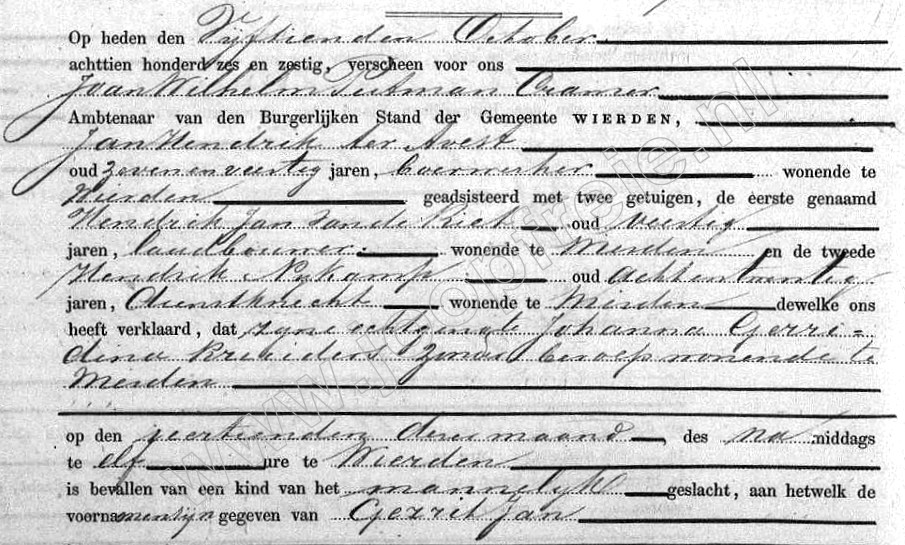 Op heden den Vyftienden October
achttien honderd zes en zestig, verscheen voor ons
Joan Wilhelm Putman Cramer
Ambtenaar van den Burgerlijken Stand der Gemeente WIERDEN,
Jan Hendrik ter Avest
oud zevenenveertig jaren, boerwerker wonende te
Wierden geadsisteerd met twee getuigen, de eerste genaamd
Hendrik Jan van de Riet oud veertig
jaren, landbouwer wonende te Wierden en de tweede
Hendrik Nykamp oud achtentwintig
jaren, dienstknecht wonende te Wierden dewelke ons
heeft verklaard, dat zyne echtgenoote Johanna Gerri=
dina Kruiders zonder beroep wonende te
Wierden
op den veertienden dezer maand, des na middags
te elf ure te Wierden
is bevallen van een kind van het mannelyk geslacht, aan hetwelk de
voornamen zyn gegeven van Gerrit Jan